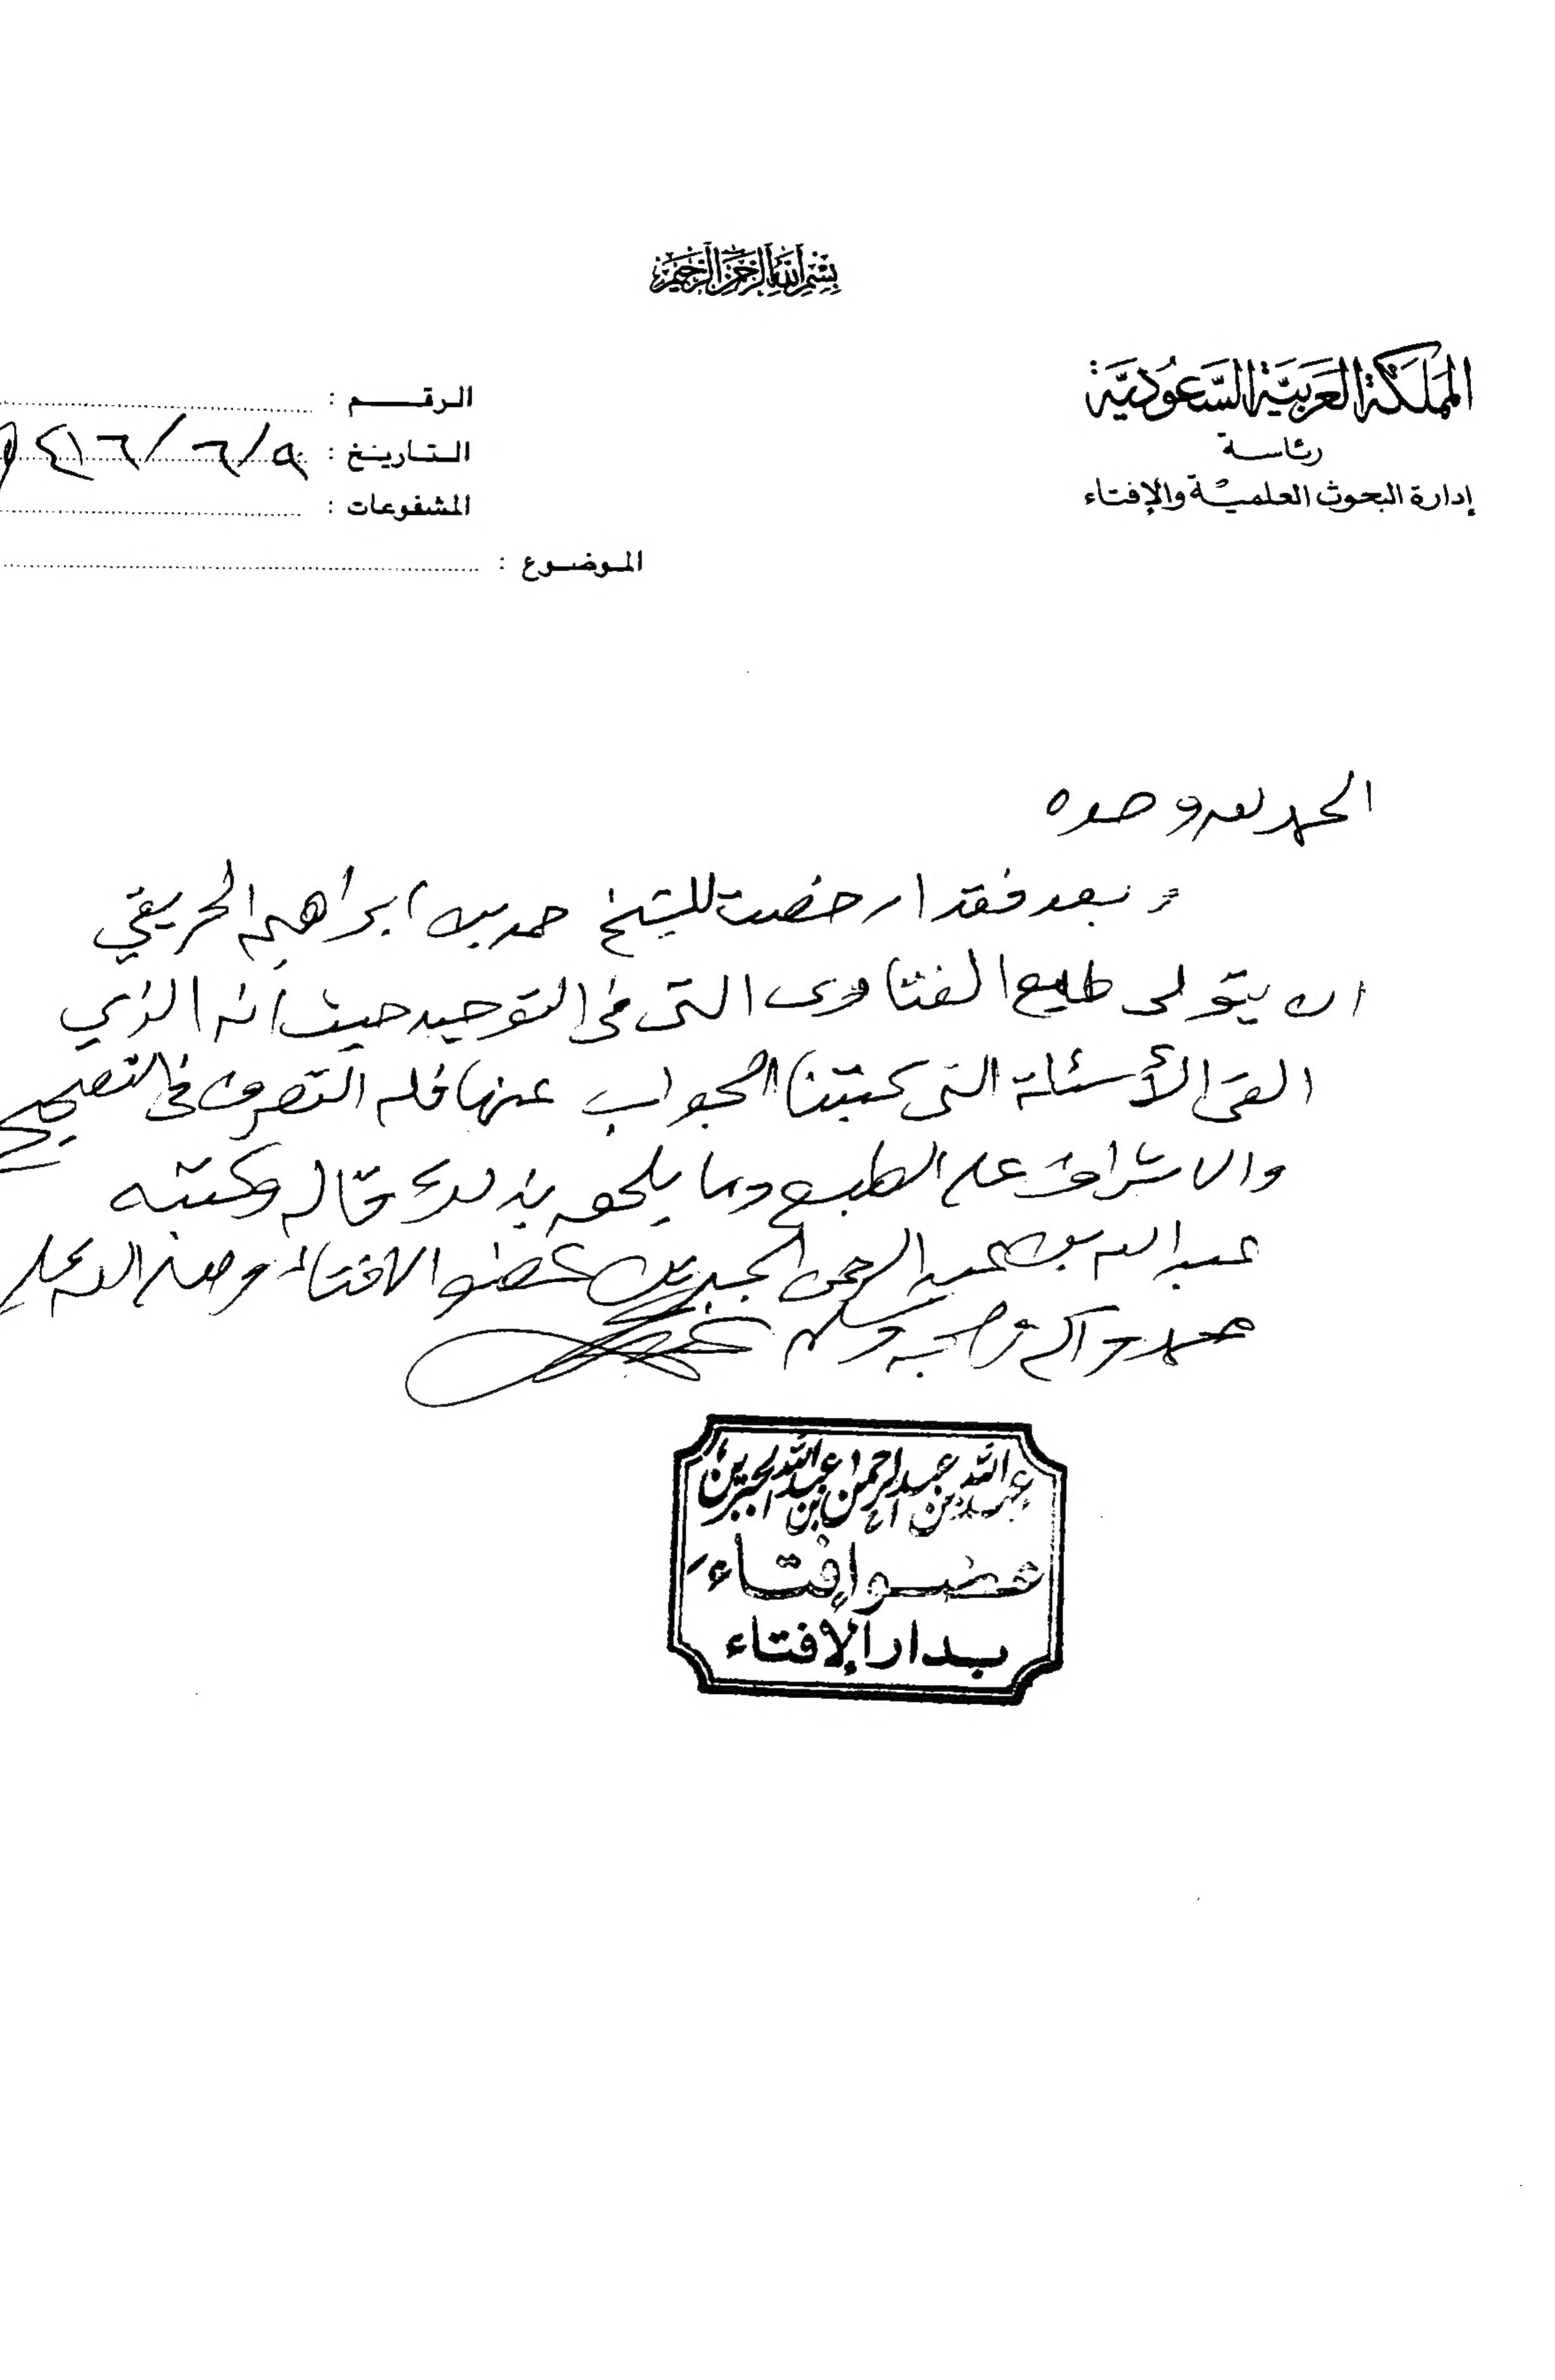 بسم الله الرحمن الرحيم
المملكة العربية السعودية
رئاسة
إدارة البحوث العلمية والإفتاء
الرقم :
التاريخ : ٩/٦/١٤١٦
المشفوعات :
الموضوع :
الحمد لله وحده
وبعد فقد ارخصت للشيخ حمد بن ابراهيم الحريقي
ان يتولى طبع الفتاوى التي في التوحيد حيث انه الذي
القى الأسئلة التي كتبنا الجواب عنها فله التصرف في التصحيح
والاشراف على الطبع وما يلحق بذلك قاله وكتبه
عبد الله بن عبد الرحمن الجبرين عضو الافتاء وصلى الله على
محمد وآله وصحبه وسلم
عبد الله بن عبد الرحمن بن عبد الله الجبرين
عضو إفتاء
بدار الإفتاء